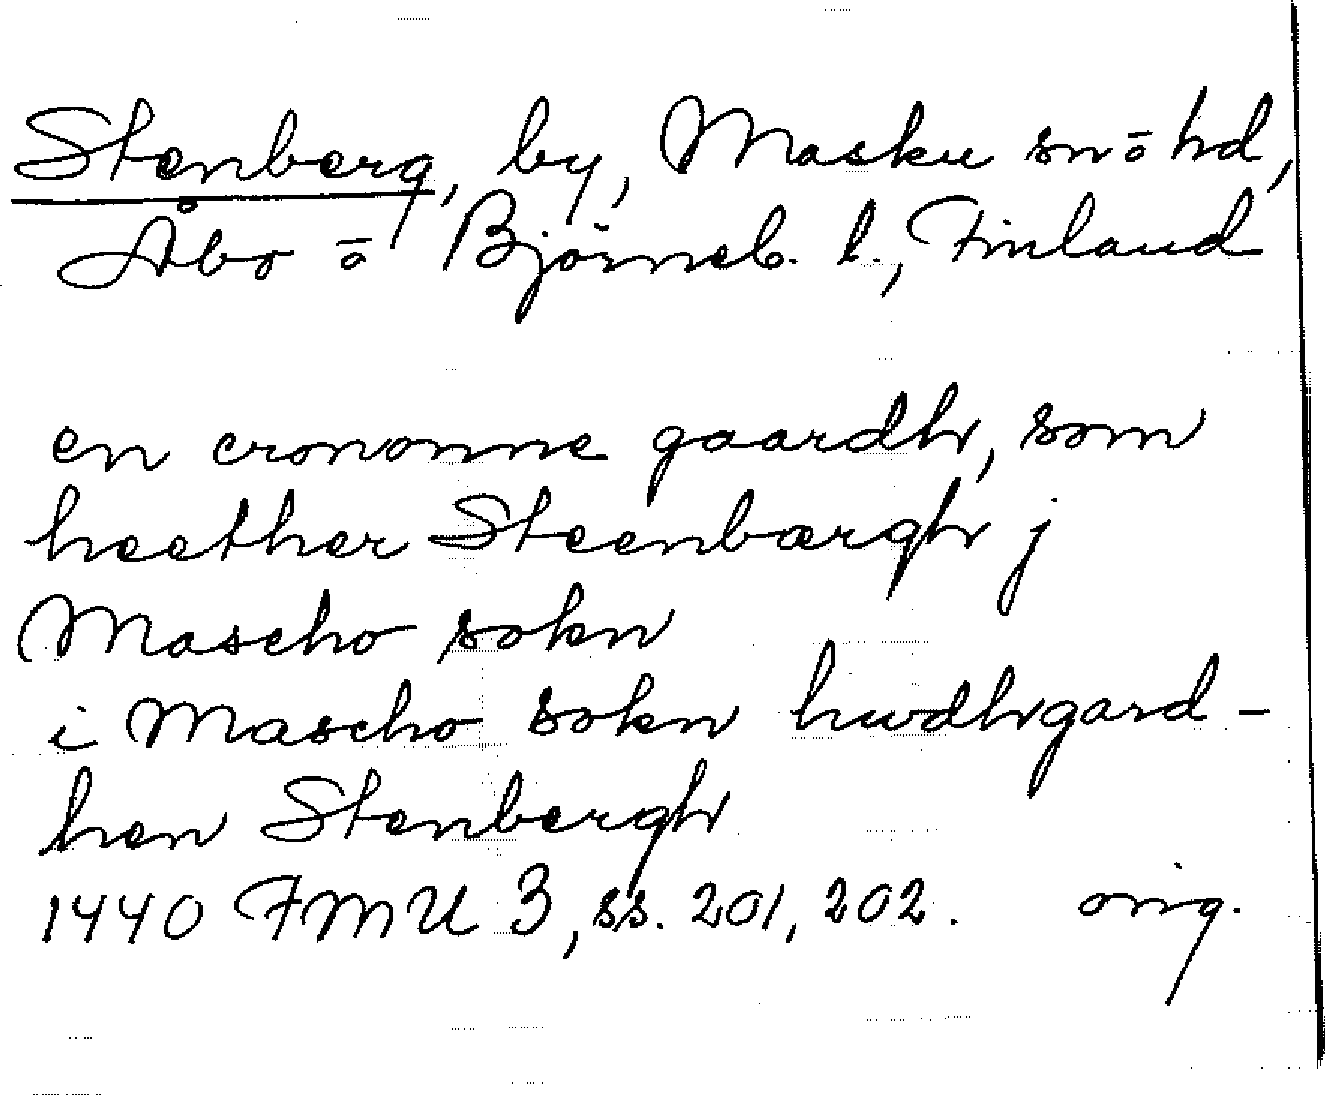 Stenberg, by, Masku sn ō hd,
Åbo ō Björneb. l., Finland
en crononne gaardh, som
heether Steenbærgh j
Mascho sokn
i Mascho sokn hwdhgard-
hen Stenbergh
1440 FMU 3, ss. 201, 202. orig.